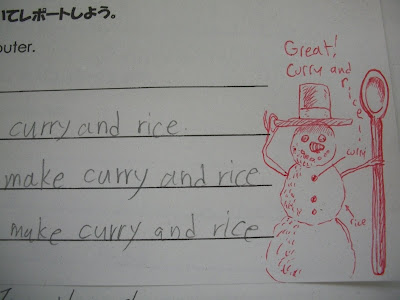 いてレポートしよう。
uter.
Great!
curry and
rice!!
curry and rice.
make curry and rice
make curry and rice
rice